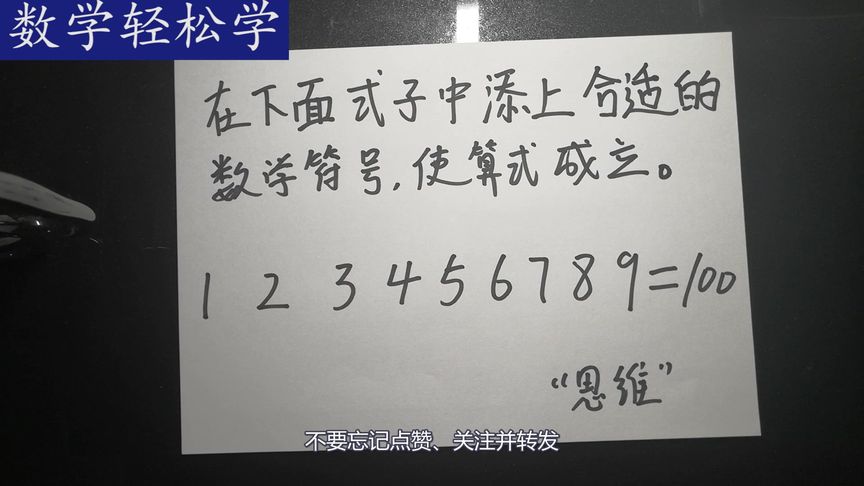 数学轻松学
在下面式子中添上合适的
数学符号,使算式成立。
1 2 3 4 5 6 7 8 9=100
“思维”
不要忘记点赞、关注并转发